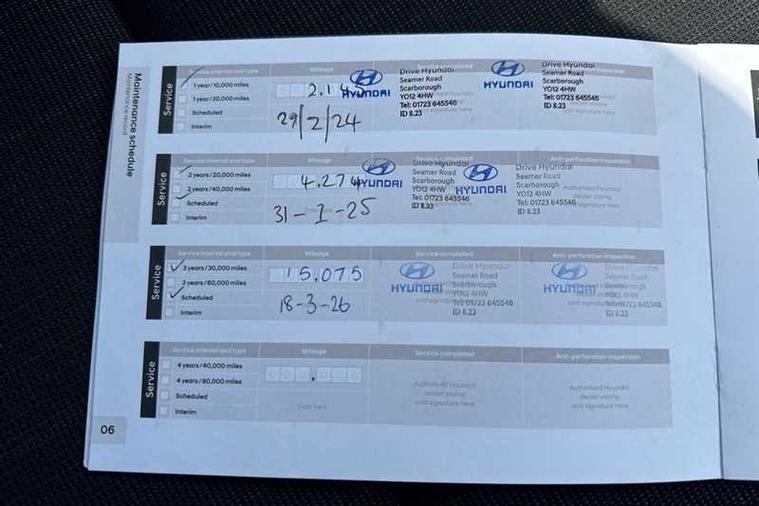 Maintenance schedule
Maintenance record
Service
Service interval and type
Mileage
1 year/10,000 miles
1 year/20,000 miles
Scheduled
Interim
2.145
29/2/24
HYUNDAI
Drive Hyundai
Seamer Road
Scarborough
YO12 4HW
Tel: 01723 645546
ID 8.23
HYUNDAI
Drive Hyundai
Seamer Road
Scarborough
YO12 4HW
Tel: 01723 645546
ID 8.23
Service
Service interval and type
Mileage
Service completed
Anti-perforation inspection
2 years/20,000 miles
2 years/40,000 miles
Scheduled
Interim
4.274
31-1-25
HYUNDAI
Drive Hyundai
Seamer Road
Scarborough
YO12 4HW
Tel: 01723 645546
ID 8.23
HYUNDAI
Drive Hyundai
Seamer Road
Scarborough
YO12 4HW
Tel: 01723 645546
ID 8.23
Service
Service interval and type
Mileage
Service completed
Anti-perforation inspection
3 years/30,000 miles
3 years/60,000 miles
Scheduled
Interim
15.075
18-3-26
HYUNDAI
Drive Hyundai
Seamer Road
Scarborough
YO12 4HW
Tel: 01723 645546
ID 8.23
HYUNDAI
Drive Hyundai
Seamer Road
Scarborough
YO12 4HW
Tel: 01723 645546
ID 8.23
Service
Service interval and type
Mileage
Service completed
Anti-perforation inspection
4 years/40,000 miles
4 years/80,000 miles
Scheduled
Interim
Date here
Authorised Hyundai
dealer stamp
and signature here
Authorised Hyundai
dealer stamp
and signature here
06